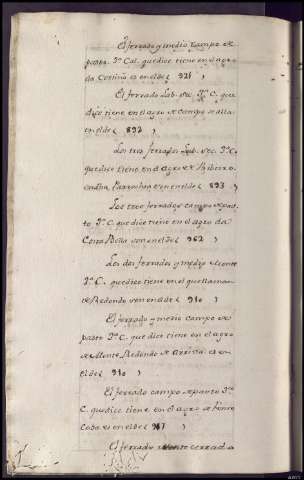 El ferrado y medio campo de
pasto 3ª Cal. que dice tiene en el agro
da Cortiña es en el de ( 921 )
El ferrado Lab. Sec. 3ª C. que
dijo tiene en el agro de campo de alla
en el de ( 892 )
Los tres ferrados Lab. Sec. 3ª C.
que dice tiene en el agro de Ribeiro
son en el de ( 893 )
Los tres ferrados campo de pas-
to 3ª C. que dice tiene en el agro da
Costa Bella son en el de ( 962 )
Los dos ferrados y medio de monte
3ª C. que dice tiene en el que llaman
de Redondo son en el de ( 910 )
El ferrado y medio campo de
pasto 3ª C. que dice tiene en el agro
de Monte Redondo de arriva es en
el de ( 910 )
El ferrado campo de pasto 3ª
C. que dice tiene en el agro de
es en el de ( 917 )
El ferrado monte cerrado